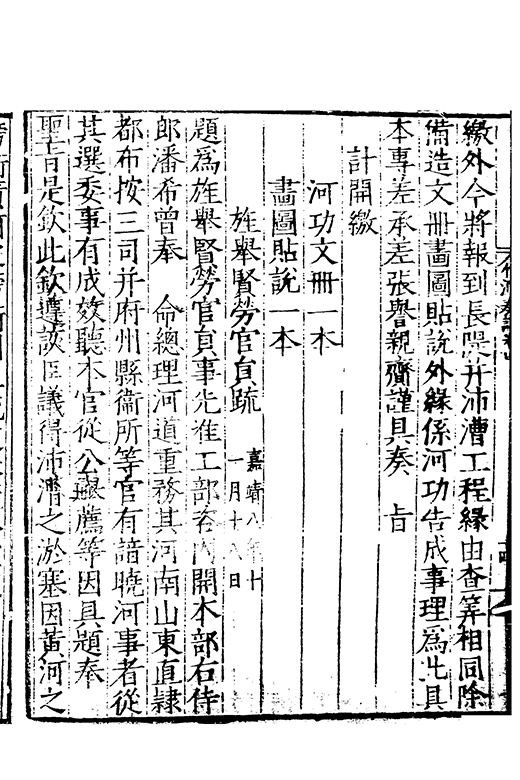 繳外今將報到長隄并沛漕工程緣由查筭相同除
備造文冊畫圖貼說外緣係河功告成事理爲此具
本專差承差張譽親齎謹具奏　旨
計開繳
河功文冊一本
畫圖貼說一本
旌舉賢勞官員疏　嘉靖八年十
一月十八日
題爲旌舉賢勞官員事先准工部咨内開本部右侍
郎潘希曾奉　命總理河道重務其河南山東直隷
都布按三司并府州縣衞所等官有諳曉河事者從
其選委事有成效聽本官從公舉薦等因具題奉
聖旨是欽此欽遵該臣議得沛漕之淤塞因黃河之